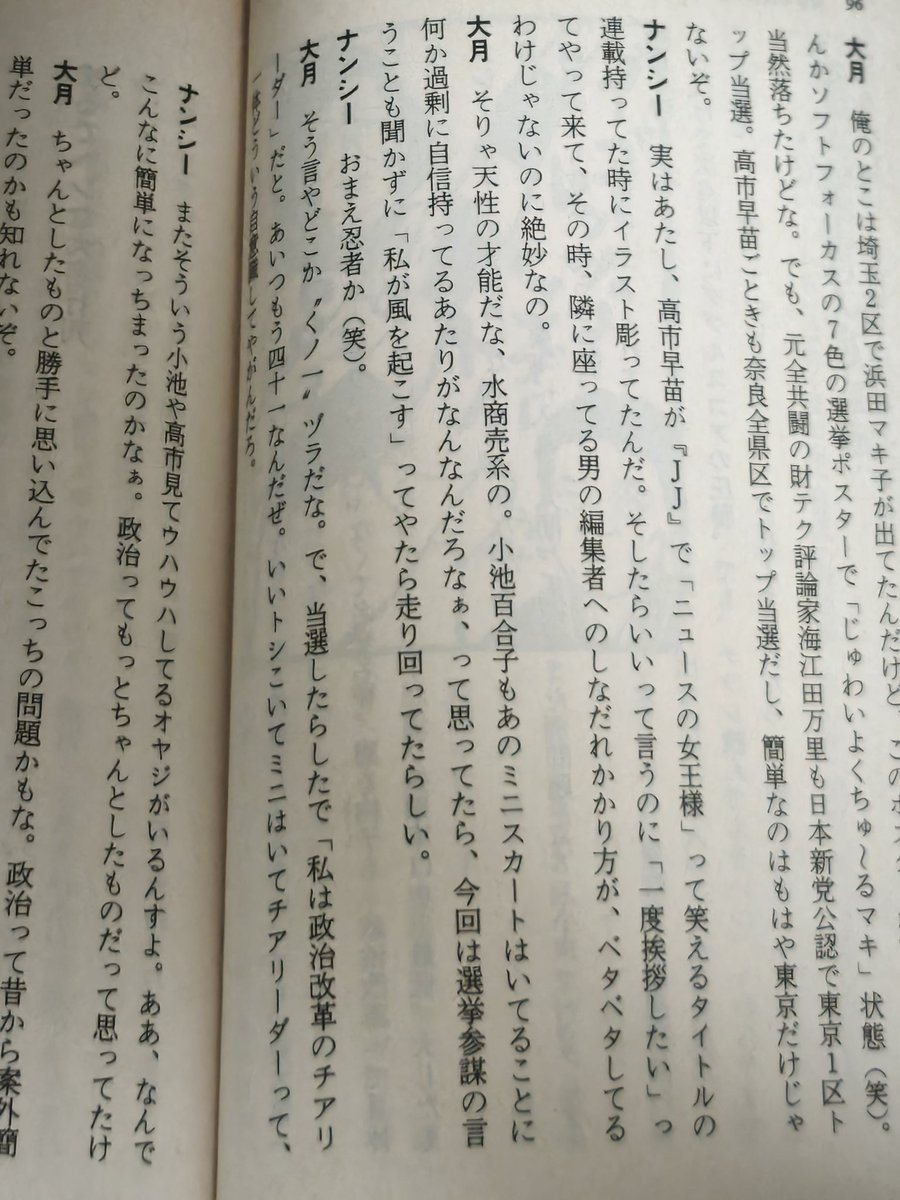 96
大月　俺のとこは埼玉2区で浜田マキ子が出てたんだけど、このポス
んかソフトフォーカスの7色の選挙ポスターで「じゅわいよくちゅ〜るマキ」状態（笑）。
当然落ちたけどな。でも、元全共闘の財テク評論家海江田万里も日本新党公認で東京1区ト
ップ当選。高市早苗ごときも奈良全県区でトップ当選だし、簡単なのはもはや東京だけじゃ
ないぞ。
ナンシー　実はあたし、高市早苗が『JJ』で「ニュースの女王様」って笑えるタイトルの
連載持ってた時にイラスト彫ってたんだ。そしたらいいって言うのに「一度挨拶したい」っ
てやって来て、その時、隣に座ってる男の編集者へのしなだれかかり方が、ベタベタしてる
わけじゃないのに絶妙なの。
大月　そりゃ天性の才能だな、水商売系の。小池百合子もあのミニスカートはいてることに
何か過剰に自信持ってるあたりがなんなんだろなぁ、って思ってたら、今回は選挙参謀の言
うことも聞かずに「私が風を起こす」ってやたら走り回ってたらしい。
ナンシー　おまえ忍者か（笑）。
大月　そう言やどこか〝くノ一〟ヅラだな。で、当選したらしたで「私は政治改革のチアリ
ーダー」だと。あいつもう四十一なんだぜ。いいトシこいてミニはいてチアリーダーって、
一体どういう自意識してやがんだろ。
ナンシー　またそういう小池や高市見てウハウハしてるオヤジがいるんすよ。ああ、なんで
こんなに簡単になっちまったのかなぁ。政治ってもっとちゃんとしたものだって思ってたけ
ど。
大月　ちゃんとしたものと勝手に思い込んでたこっちの問題かもな。政治って昔から案外簡
単だったのかも知れないぞ。